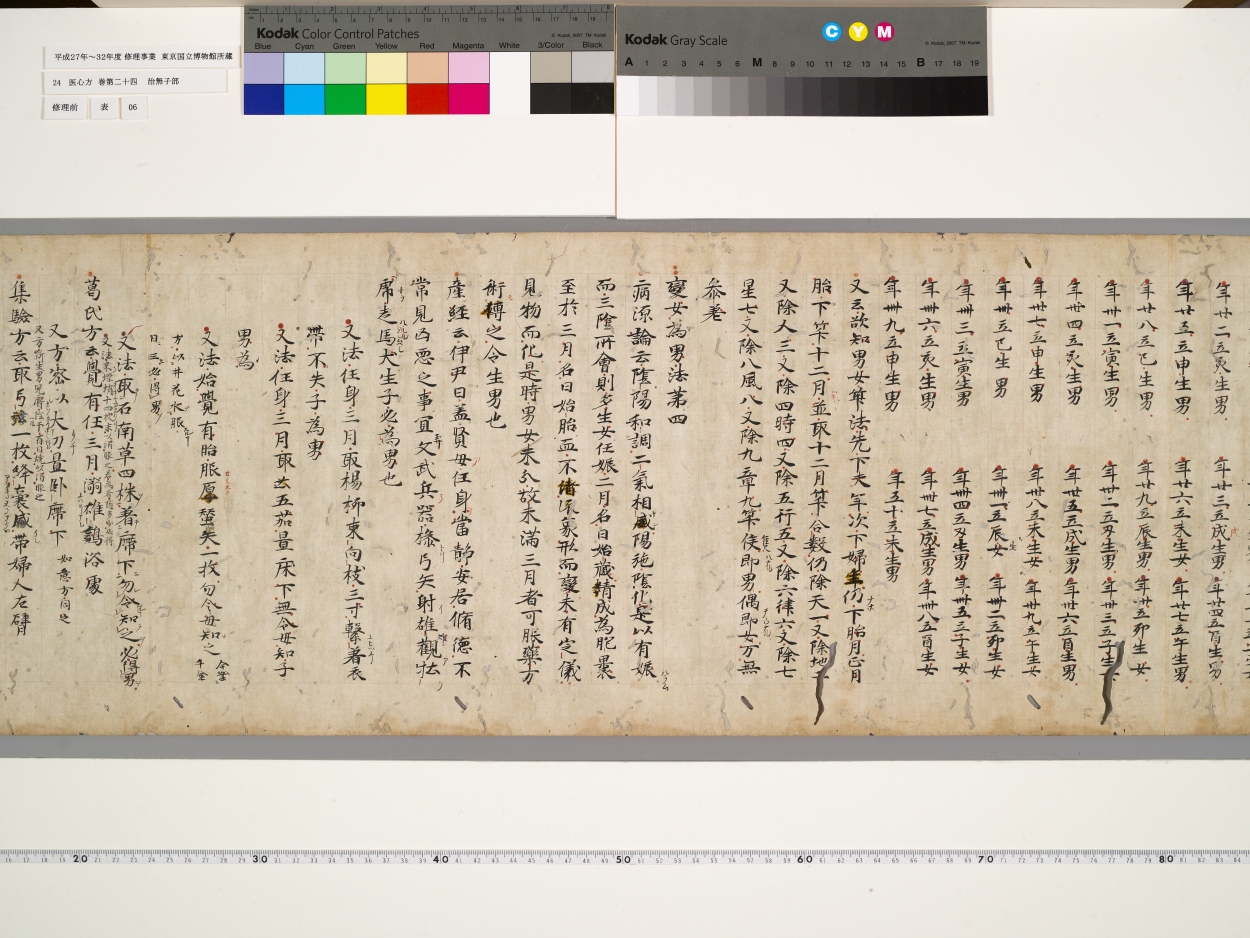 平成27年～32年度 修理事業 東京国立博物館所蔵
24 医心方 巻第二十四 治無子部
修理前 表 06
Kodak Color Control Patches
Blue Cyan Green Yellow Red Magenta White 3/Color Black
Kodak Gray Scale
C Y M
A 1 2 3 4 5 6 M 8 9 10 11 12 13 14 15 B 17 18 19
年廿二立亥生男 年廿三立戌生男 年廿四立酉生男
年廿五立申生男 年廿六立未生女 年廿七立午生男
年廿八立巳生男 年廿九立辰生男 年卅立卯生女
年卅一立寅生男 年卅二立丑生男 年卅三立子生
年卅四立亥生男 年卅五立戌生男 年卅六立酉生男
年卅七立申生男 年卅八立未生女 年卅九立午生女
年卌立巳生男 年卌一立辰女 年卌二立卯生女
年卌三立寅生男 年卌四立丑生男 年卌五立子生女
年卌六立亥生男 年卌七立戌生男 年卌八立酉生女
年卌九立申生男 年五十立未生男
又云欲知男女笇法先下夫年次下婦年仍下胎月正月
胎下笇十二月並取十二月笇合數仍除天一又除地二
又除人三又除四時四又除五行五又除六律六又除七
星七又除八風八又除九章九笇使即男偶即女万無
参差
變女為男法第四
病源論云陰陽和調二氣相感陽施陰化是以有娠
而三陰所會則多生女任娠二月名曰始藏精成為胞裏
至於三月名曰始胎血不流象形而變未有定儀
見物而化是時男女未分故未滿三月者可服藥方
術轉之令生男也
産經云伊尹曰盖賢母任身當靜安居脩德不
常見凶惡之事宜文武兵器操弓矢射雄觀牡
席走馬犬生子必為男也
又法任身三月取楊柳東向枝三寸繫著衣
帶不失子為男
又法任身三月取五茄置床下無令母知子
男為
又法始覺有胎服原蠶矢一枚勿令母知之
千金
方以井花水服
日三必得男
又法取石南草四株著席下勿令知之必得男
葛氏方云覺有任三月溺雄鷄浴處
又方密以大刀置卧席下 如意方同之
集驗方云取弓弩一枚絳囊盛帶婦人左臂
20 30 40 50 60 70 80